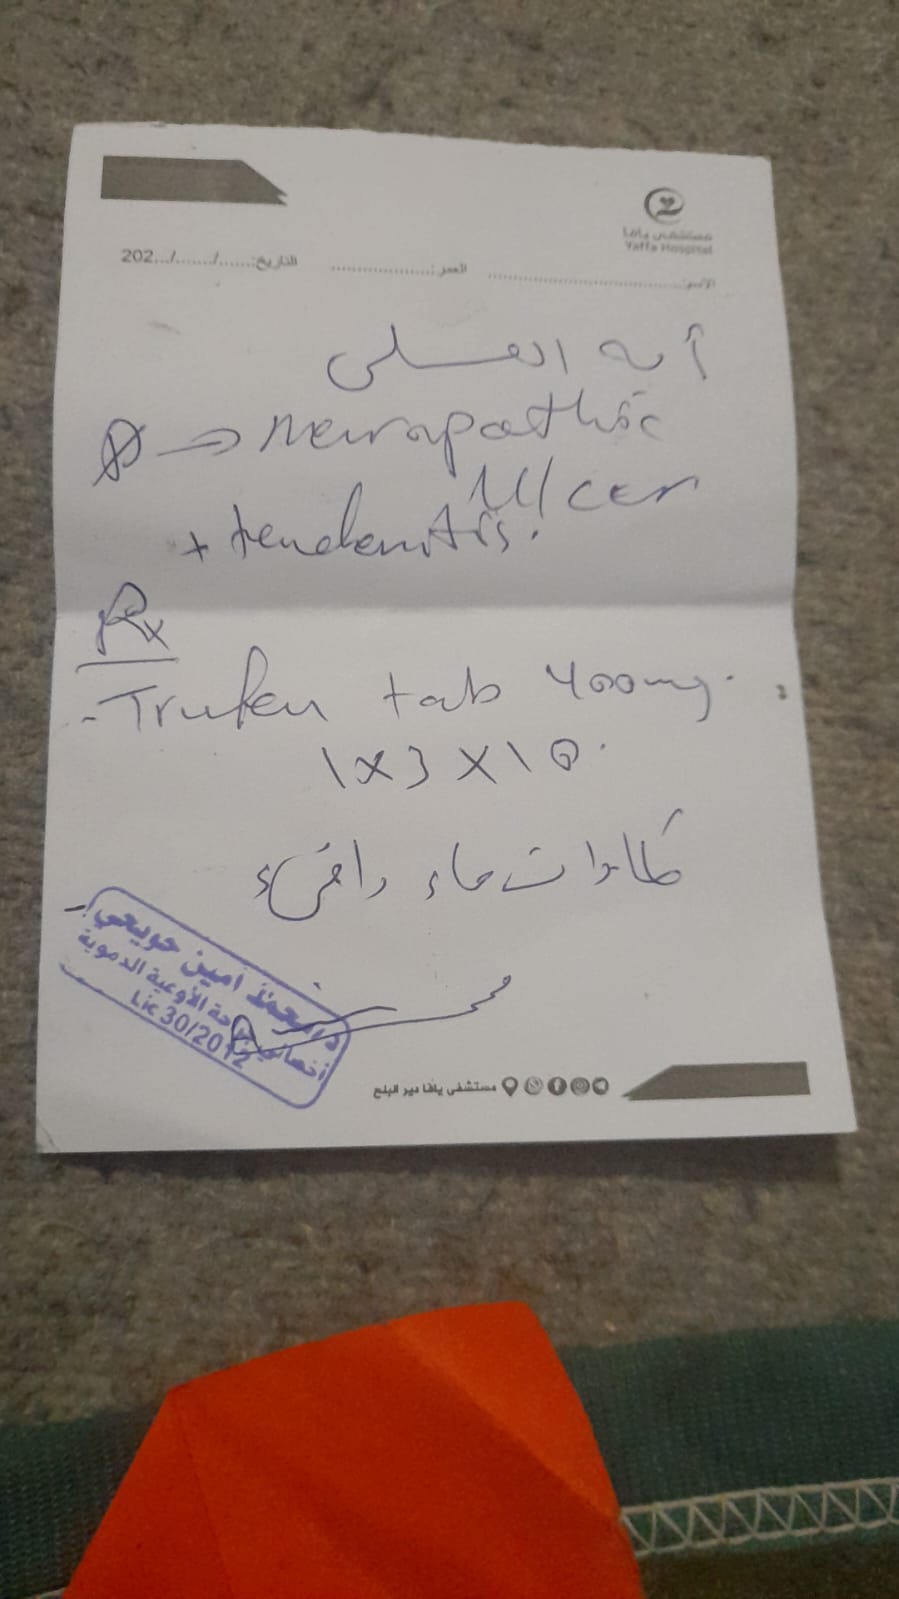 مستشفى يافا
Yaffa Hospital
الاسم:.................... العمر:.................... التاريخ:......./......./...202
آية
D → Neuropathic
Ulcer
+ tendenitis.
Rx
- Trufen tab 400mg.
1 x 3 x 10
كمادات ماء دافئ
د. محمد أمين حويحي
أخصائي جراحة الأوعية الدموية
Lic 30/2012
مستشفى يافا دير البلح